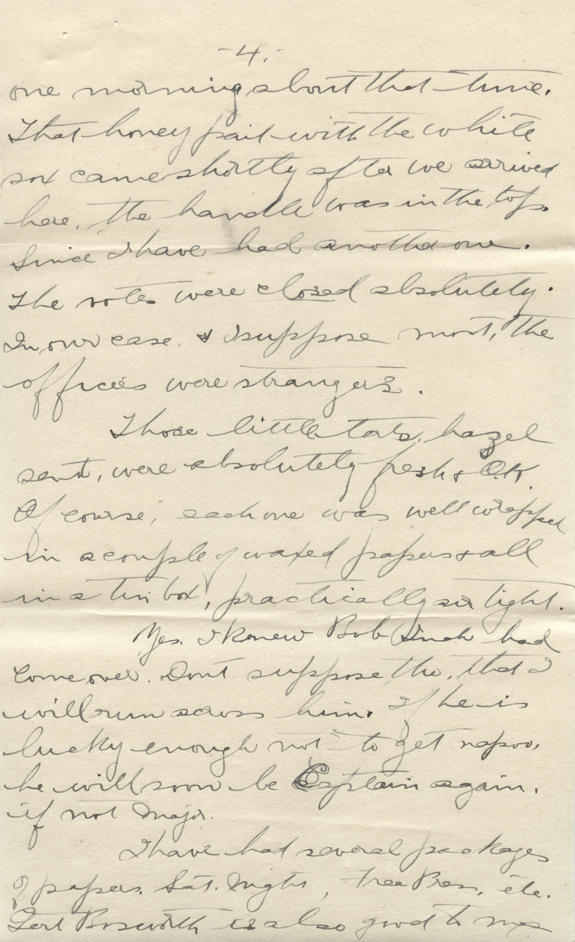 -4.-
one morning about that time.
That honey pail with the white
sox came shortly after we arrived
here, the handle was in the top.
Since I have had another one.
The votes were closed absolutely.
In our case & I suppose most, the
officers were strangers.
Those little tarts, hazel
sent, were absolutely fresh & O.K.
Of course, each one was well wrapped
in a couple of waxed papers & all
in a tin box, practically air tight.
Yes. I knew Bob had
come over. Dont suppose tho, that I
will run across him. If he is
lucky enough not to get napoo,
he will soon be Captain again,
if not Major.
I have had several packages
of papers. Sat. Night, Free Press, etc.
Gert Bosworth is also good to me